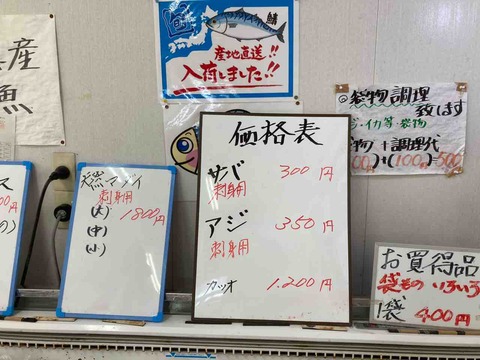 産
魚
旬
鯖
産地直送!!
入荷しました!!
袋物調理
致します
イカ等・袋物
調理代
ス
天然マダイ
刺身用
(大) 1800円
(中)
(小)
価格表
サバ 300円
刺身用
アジ 350円
刺身用
カツオ 1.200円
お買得品
袋もの いろいろ
1袋 400円